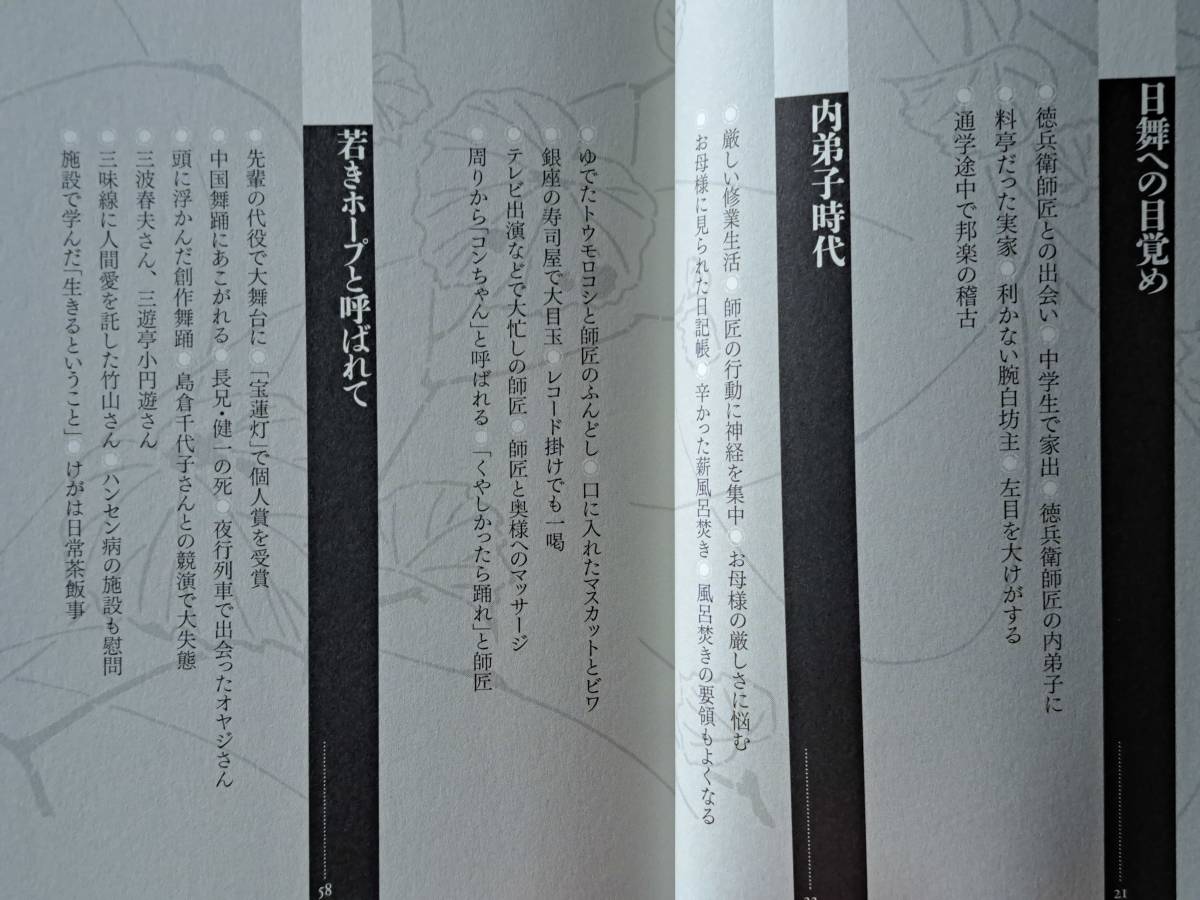 日舞への目覚め
21
◉徳兵衛師匠との出会い◉中学生で家出◉徳兵衛師匠の内弟子に
◉料亭だった実家◉利かない腕白坊主◉左目を大けがする
◉通学途中で邦楽の稽古
内弟子時代
◉厳しい修業生活◉師匠の行動に神経を集中◉お母様の厳しさに悩む
◉お母様に見られた日記帳◉辛かった薪風呂焚き◉風呂焚きの要領もよくなる
◉ゆでたトウモロコシと師匠のふんどし◉口に入れたマスカットとビワ
◉銀座の寿司屋で大目玉◉レコード掛けでも一喝
◉テレビ出演などで大忙しの師匠◉師匠と奥様へのマッサージ
◉周りから「コンちゃん」と呼ばれる◉「くやしかったら踊れ」と師匠
若きホープと呼ばれて
58
◉先輩の代役で大舞台に◉「宝蓮灯」で個人賞を受賞
◉中国舞踊にあこがれる◉長兄・健一の死◉夜行列車で出会ったオヤジさん
◉頭に浮かんだ創作舞踊◉島倉千代子さんとの競演で大失態
◉三波春夫さん、三遊亭小円遊さん
◉三味線に人間愛を託した竹山さん◉ハンセン病の施設も慰問
◉施設で学んだ「生きるということ」◉けがは日常茶飯事